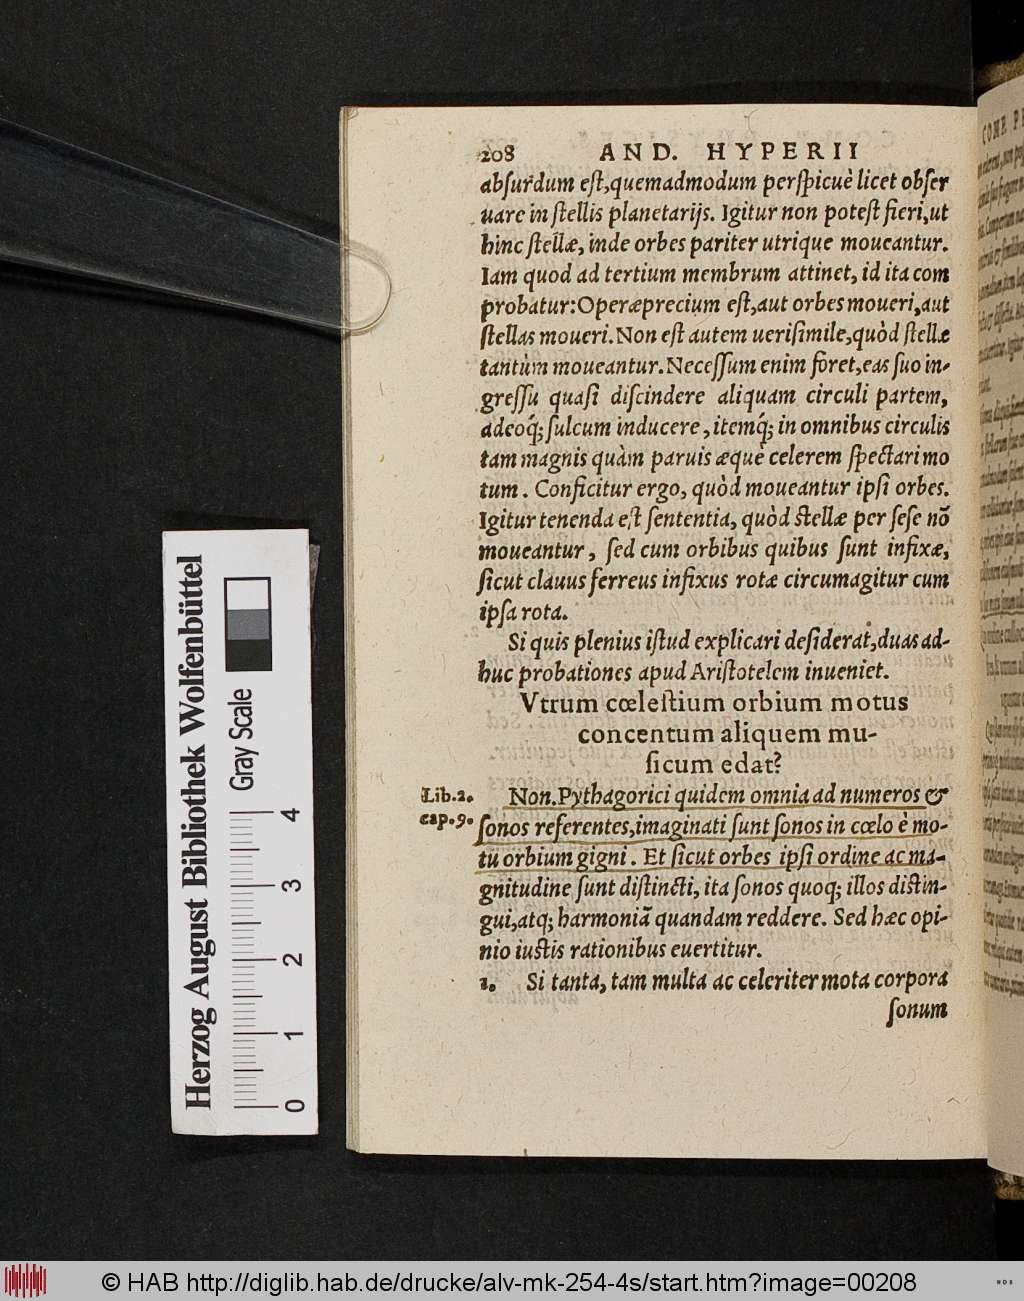 208 AND. HYPERII
absurdum est, quemadmodum perspicuè licet obser
uare in stellis planetarijs. Igitur non potest fieri, ut
hinc stellæ, inde orbes pariter utrique moueantur.
Iam quod ad tertium membrum attinet, id ita com
probatur: Operæprecium est, aut orbes moueri, aut
stellas moueri. Non est autem uerisimile, quòd stellæ
tantùm moueantur. Necessum enim foret, eas suo in-
gressu quasi discindere aliquam circuli partem,
adeoq́; sulcum inducere, itemq́; in omnibus circulis
tam magnis quàm paruis æquè celerem spectari mo
tum. Conficitur ergo, quòd moueantur ipsi orbes.
Igitur tenenda est sententia, quòd stellæ per sese nõ
moueantur, sed cum orbibus quibus sunt infixæ,
sicut clauus ferreus infixus rotæ circumagitur cum
ipsa rota.
Si quis plenius istud explicari desiderat, duas ad-
huc probationes apud Aristotelem inueniet.
Vtrum cœlestium orbium motus
concentum aliquem mu-
sicum edat?
Lib.2. Non. Pythagorici quidem omnia ad numeros &
cap.9. sonos referentes, imaginati sunt sonos in cœlo è mo-
tu orbium gigni. Et sicut orbes ipsi ordine ac ma-
gnitudine sunt distincti, ita sonos quoq; illos distin-
gui, atq; harmoniã quandam reddere. Sed hæc opi-
nio iustis rationibus euertitur.
1. Si tanta, tam multa ac celeriter mota corpora
sonum
Herzog August Bibliothek Wolfenbüttel
Gray Scale
0 1 2 3 4
© HAB http://diglib.hab.de/drucke/alv-mk-254-4s/start.htm?image=00208